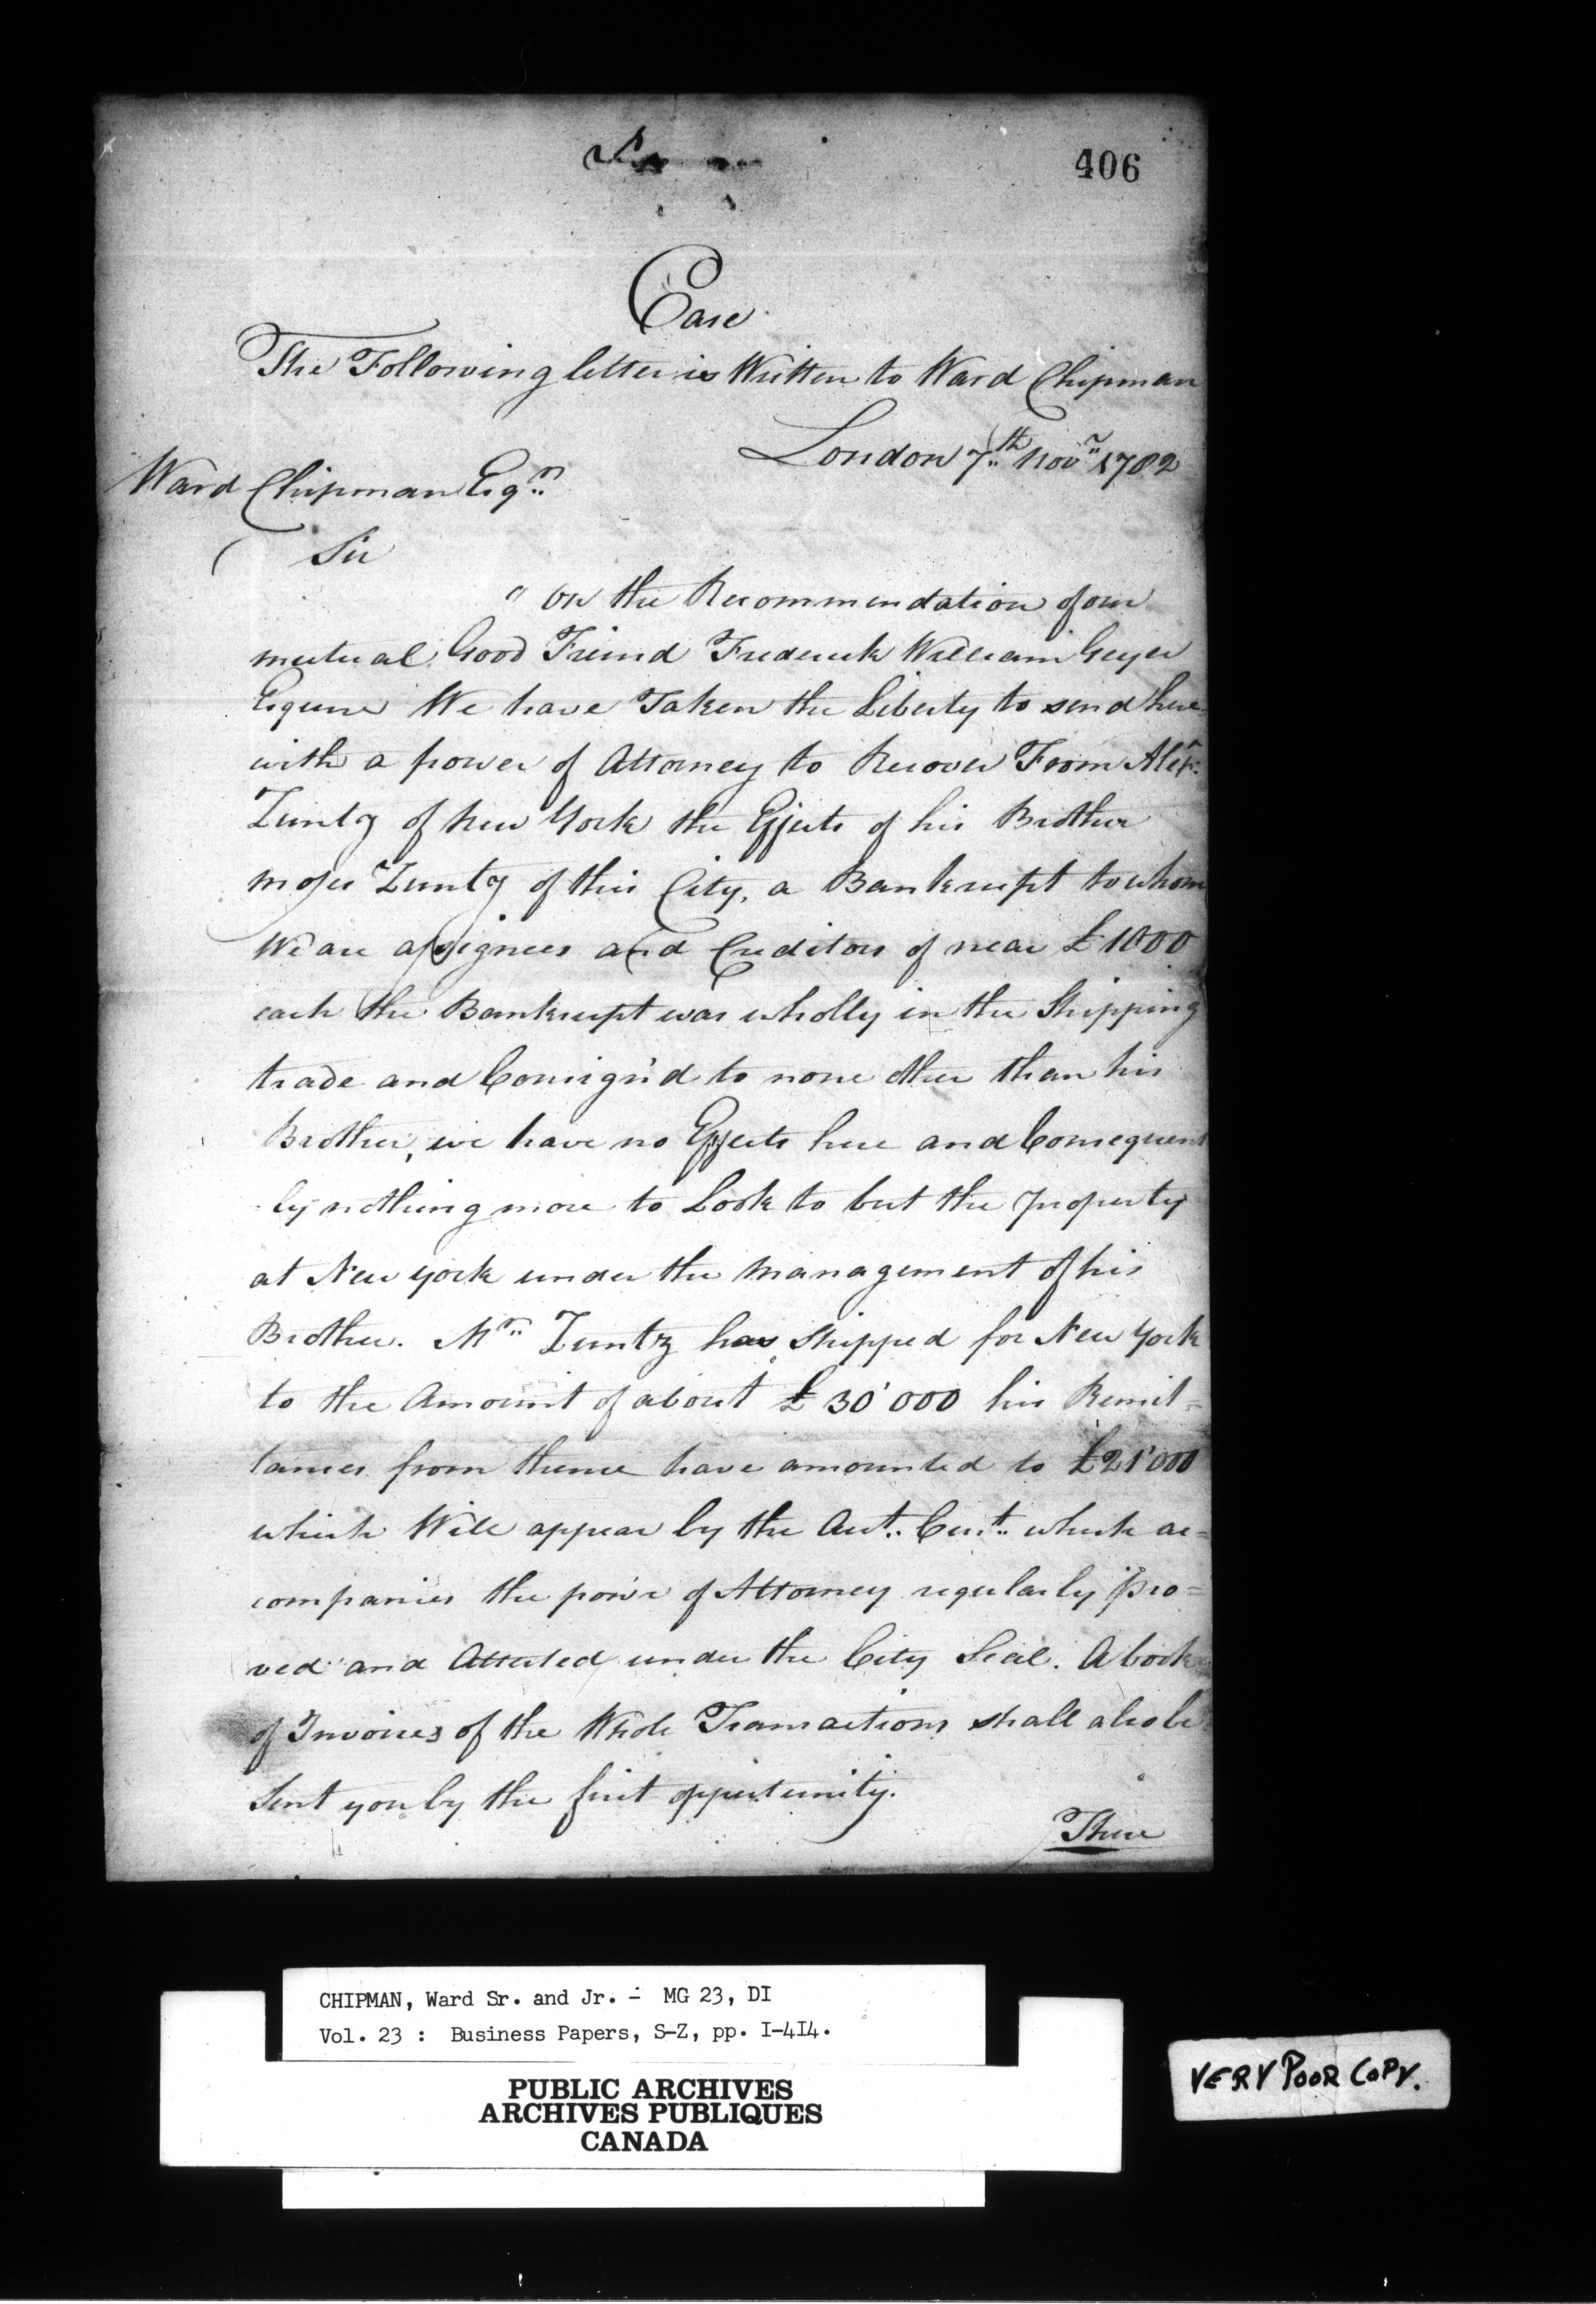 406
Case
The Following letter is Written to Ward Chipman
London 7th Novr 1782
Ward Chipman Esqr
Sir
" On the Recommendation of our
mutual Good Freind Frederick William Geyer
Esquire We have Taken the Liberty to send here
with a power of Attorney to Recover From Alexr
Zuntz of New York the Effects of his Brother
Moses Zuntz of this City, a Bankrupt to whom
We are assignees and Creditors of near £1000
each the Bankrupt was wholly in the Shipping
trade and Consign'd to none other than his
Brother, we have no Effects here and Consequent
-ly nothing more to Look to but the property
at New york under the Management of his
Brother. Mr Zuntz has Shipped for New York
to the Amount of about £30'000 his Remit-
tances from thence have amounted to £21'000
which Will appear by the Acct. Curt. which ac=
companies the pow'r of Attorney regularly pro=
ved and Attested under the City Seal. A book
of Invoices of the Whole Transactions shall also be
Sent you by the first oppertunity.
There
CHIPMAN, Ward Sr. and Jr. - MG 23, DI
Vol. 23 : Business Papers, S-Z, pp. I-4I4.
PUBLIC ARCHIVES
ARCHIVES PUBLIQUES
CANADA
VERY POOR COPY.